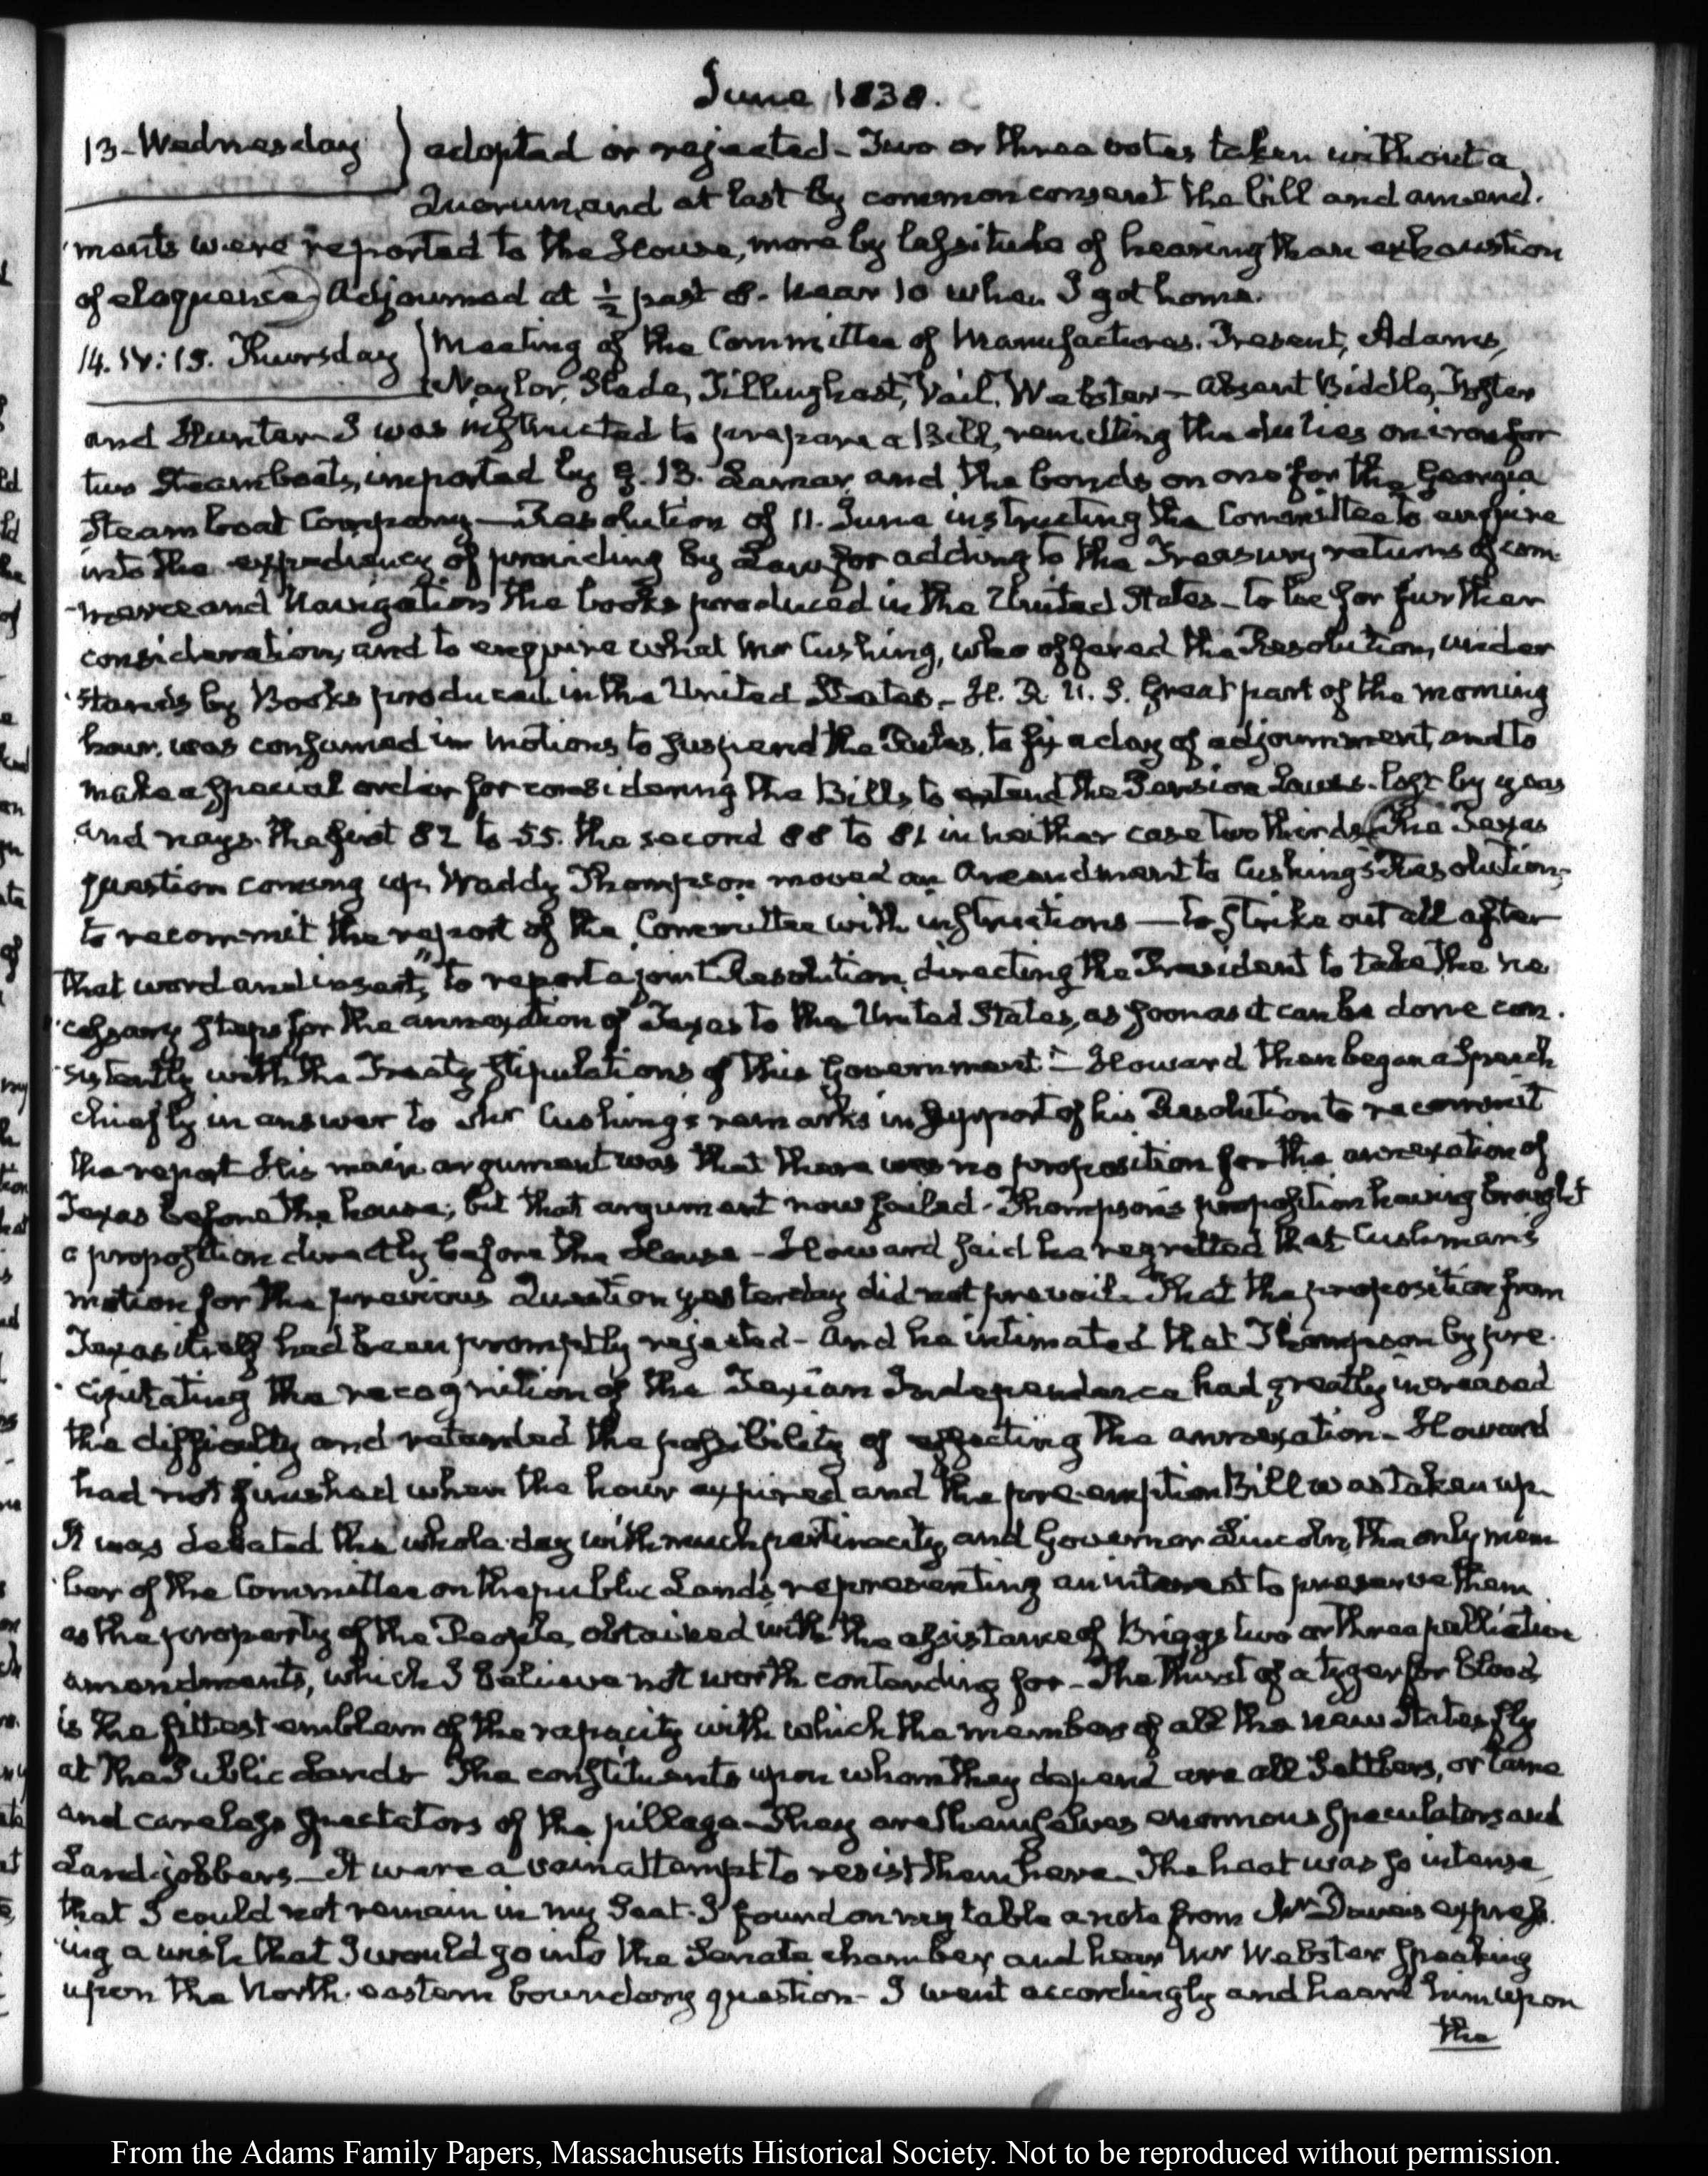 June 1838.
13-Wednesday } adopted or rejected- Two or three votes taken without a
Quorum, and at last by common consent the bill and amend.
ments were reported to the House, more by lassitude of hearing than exhaustion
of eloquence) Adjourned at ½ past 8. Near 10 when I got home.
14. IV:15. Thursday } Meeting of the Committee of Manufactures. Present, Adams,
Naylor, Slade, Tillinghast, Vail, Webster- Absent Biddle, Foster
and Hunter- I was instructed to prepare a Bill, remitting the duties on iron for
two Steamboats, imported by G. B. Lamar, and the bonds on one for the Georgia
Steam boat Company- Resolution of 11. June instructing the Committee to enquire
into the expediency of providing by Law for adding to the Treasury returns of com-
-merce and Navigation the books produced in the United States- to lie for further
consideration, and to enquire what Mr Cushing, who offered the Resolution, under
stands by Books produced in the United States.- H. R. U. S. Great part of the morning
hour, was consumed in motions to suspend the Rules, to fix a day of adjournment, and to
make a special order for considering the Bills, to extend the Pension Laws. lost by yeas
and nays. the first 82 to 55. the second 88 to 81 in neither case two thirds (The Texas
question coming up, Waddy Thompson moved an Amendment to Cushing's Resolution,
to recommit the report of the Committee with instructions — to strike out all after
that word and insert, "to report a joint Resolution, directing the President to take the ne
cessary steps for the annexation of Texas to the United States, as soon as it can be done con.
sistently with the Treaty stipulations of this Government."- Howard then began a Speech
chiefly in answer to Mr Cushing's remarks in support of his Resolution to recommit
the report His main argument was that there was no proposition for the annexation of
Texas before the house; but that argument now failed. Thompson's proposition having brought
a proposition directly before the House- Howard said he regretted that Cushman's
motion for the previous Question yesterday did not prevail- That the proposition from
Texas itself had been promptly rejected- And he intimated that Thompson by pre.
cipitating the recognition of the Texian Independence had greatly increased
the difficulty and retarded the possibility of effecting the annexation- Howard
had not finished when the hour expired and the pre-emption Bill was taken up.
It was debated the whole day with much pertinacity, and Governor Lincoln, the only mem
ber of the Committee on the public Lands, representing an interest to preserve them
as the property of the People, obtained with the assistance of Briggs two or three palliative
amendments, which I believe not worth contending for- The thirst of a tyger for blood
is the fittest emblem of the rapacity with which the members of all the new States fly
at the Public Lands The constituents upon whom they depend are all Settlers, or tame
and careless spectators of the pillage- They are themselves enormous speculators and
Land-jobbers- It were a vain attempt to resist them here- The heat was so intense,
that I could not remain in my Seat- I found on my table a note from Mr Davis express.
ing a wish that I would go into the Senate chamber, and hear Mr Webster speaking
upon the North-eastern boundary question- I went accordingly and heard him upon
the
From the Adams Family Papers, Massachusetts Historical Society. Not to be reproduced without permission.